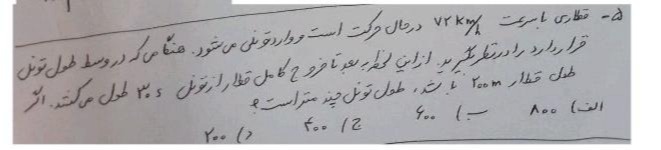 ۵- قطاری با سرعت ۷۲ km/h در حال حرکت است و وارد تونلی می‌شود. هنگامی که در وسط طول تونل
قرار دارد را در نظر بگیرید. از این لحظه به بعد تا خروج کامل قطار از تونل ۳۰s طول می‌کشد. اگر
طول قطار ۲۰۰m باشد، طول تونل چند متر است؟
الف) ۸۰۰ ب) ۶۰۰ ج) ۴۰۰ د) ۲۰۰